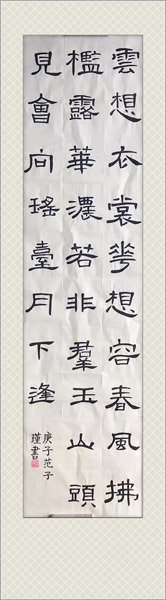 雲想衣裳華想容春風拂
檻露華濃若非羣玉山頭
見會向瑤臺月下逢
庚子范子
瑾書